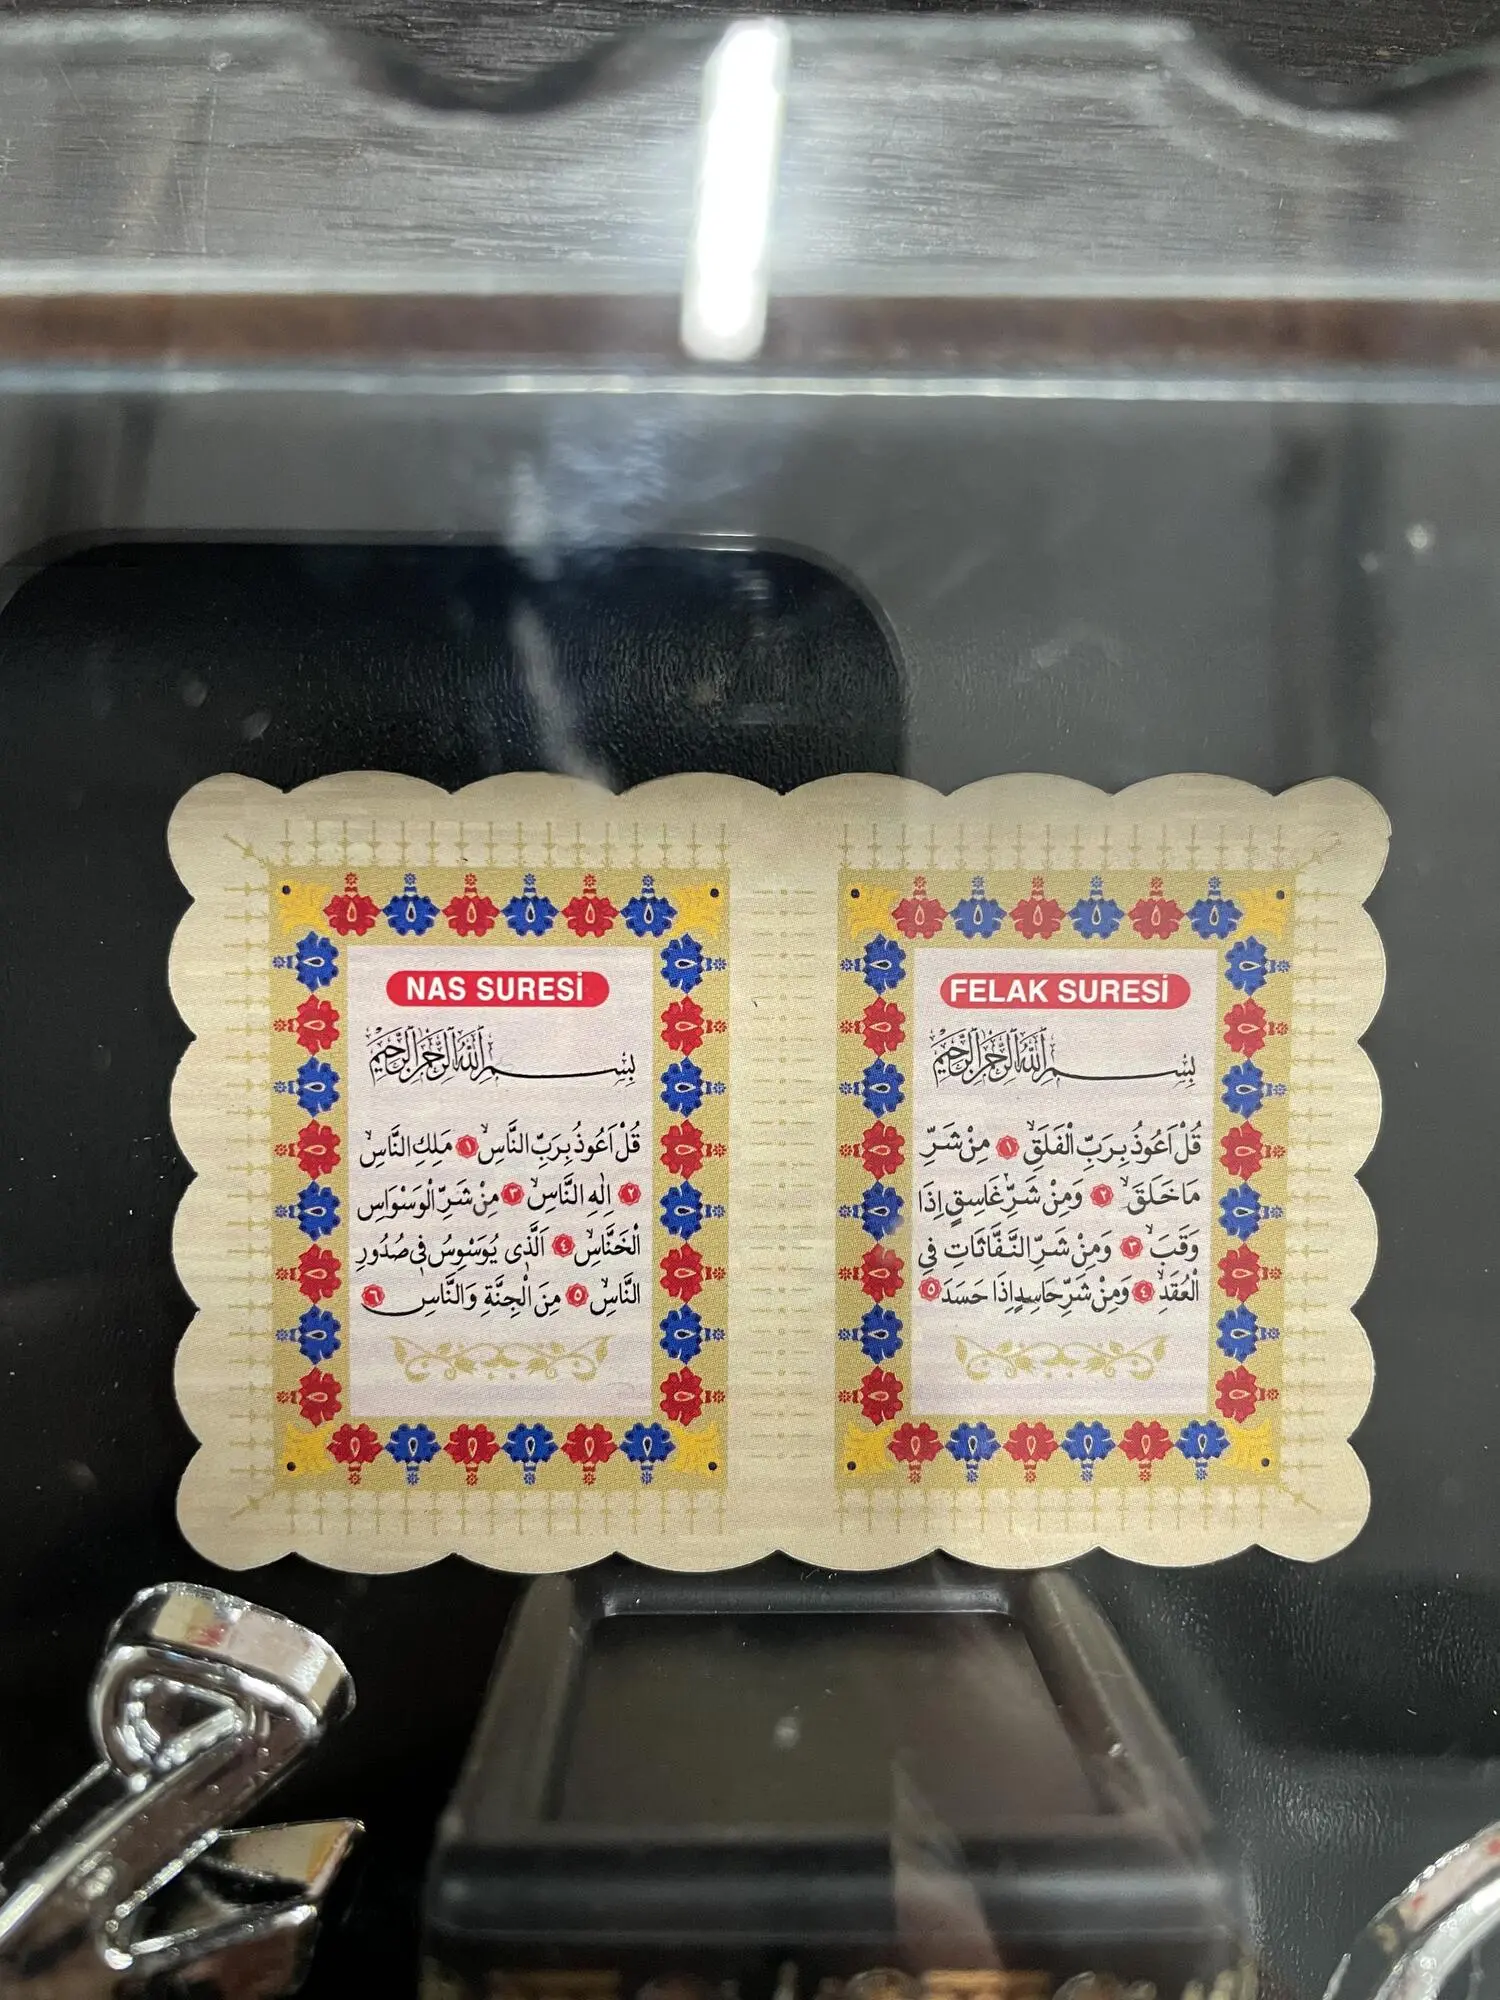 NAS SURESİ
بِسْمِ اللّٰهِ الرَّحْمٰنِ الرَّحِيمِ
قُلْ اَعُوذُ بِرَبِّ النَّاسِۙ ﴿١﴾ مَلِكِ النَّاسِۙ
﴿٢﴾ اِلٰهِ النَّاسِۙ ﴿٣﴾ مِنْ شَرِّ الْوَسْوَاسِ
الْخَنَّاسِۙ ﴿٤﴾ اَلَّذِى يُوَسْوِسُ فِى صُدُورِ
النَّاسِۙ ﴿٥﴾ مِنَ الْجِنَّةِ وَالنَّاسِ ﴿٦﴾
FELAK SURESİ
بِسْمِ اللّٰهِ الرَّحْمٰنِ الرَّحِيمِ
قُلْ اَعُوذُ بِرَبِّ الْفَلَقِۙ ﴿١﴾ مِنْ شَرِّ
مَا خَلَقَۙ ﴿٢﴾ وَمِنْ شَرِّ غَاسِقٍ اِذَا
وَقَبَۙ ﴿٣﴾ وَمِنْ شَرِّ النَّفَّاثَاتِ فِي
الْعُقَدِۙ ﴿٤﴾ وَمِنْ شَرِّ حَاسِدٍ اِذَا حَسَدَ ﴿٥﴾